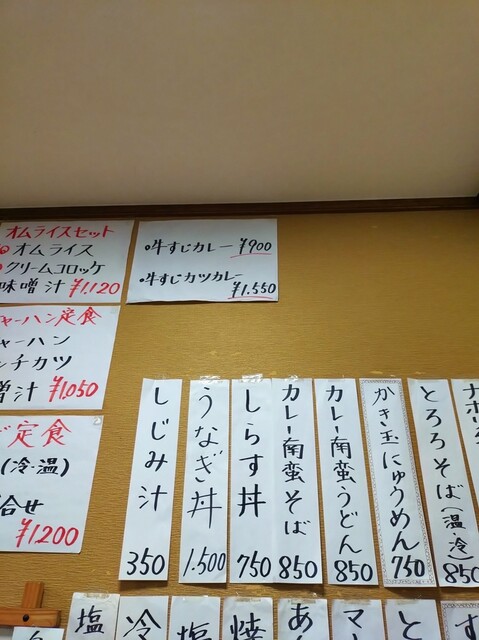 オムライスセット
オムライス
クリームコロッケ
味噌汁 ¥1,120
牛すじカレー ¥900
牛すじカツカレー
¥1,550
ャーハン定食
ャーハン
ンチカツ
噌汁 ¥1,050
定食
(冷・温)
合せ
¥1,200
しじみ汁 350
うなぎ丼 1,500
しらす丼 750
カレー南蛮そば 850
カレー南蛮うどん 850
かき玉にゅうめん 750
とろろそば(温・冷) 850
ナポリ
塩
冷
塩
焼
あん
マー
と
す